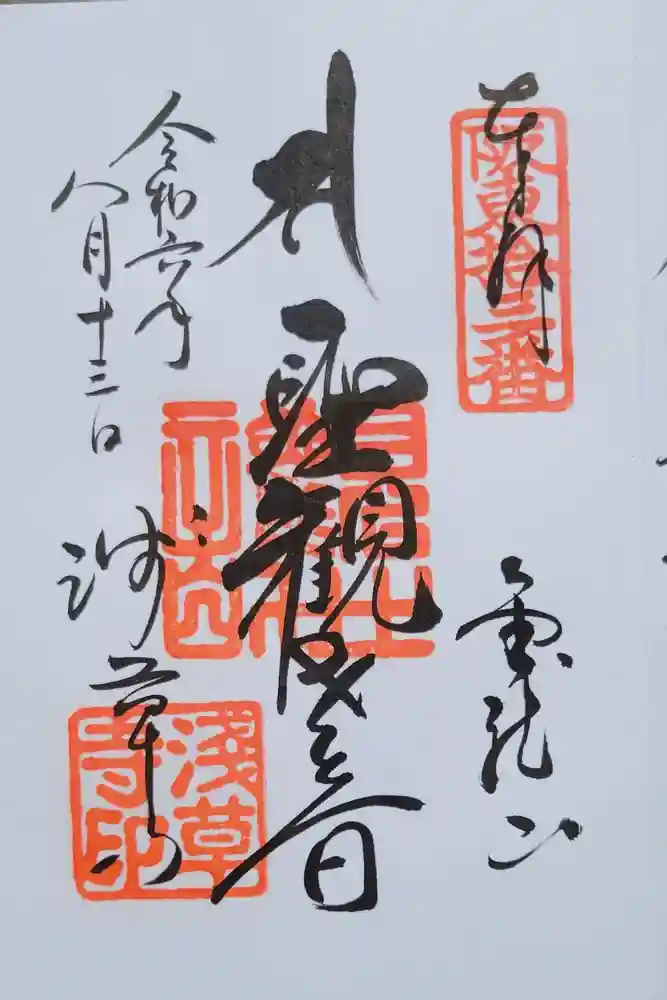 奉拝
阪東拾三番
金龍山
聖観世音
令和六年
八月十三日
浅草寺
淺草
寺印